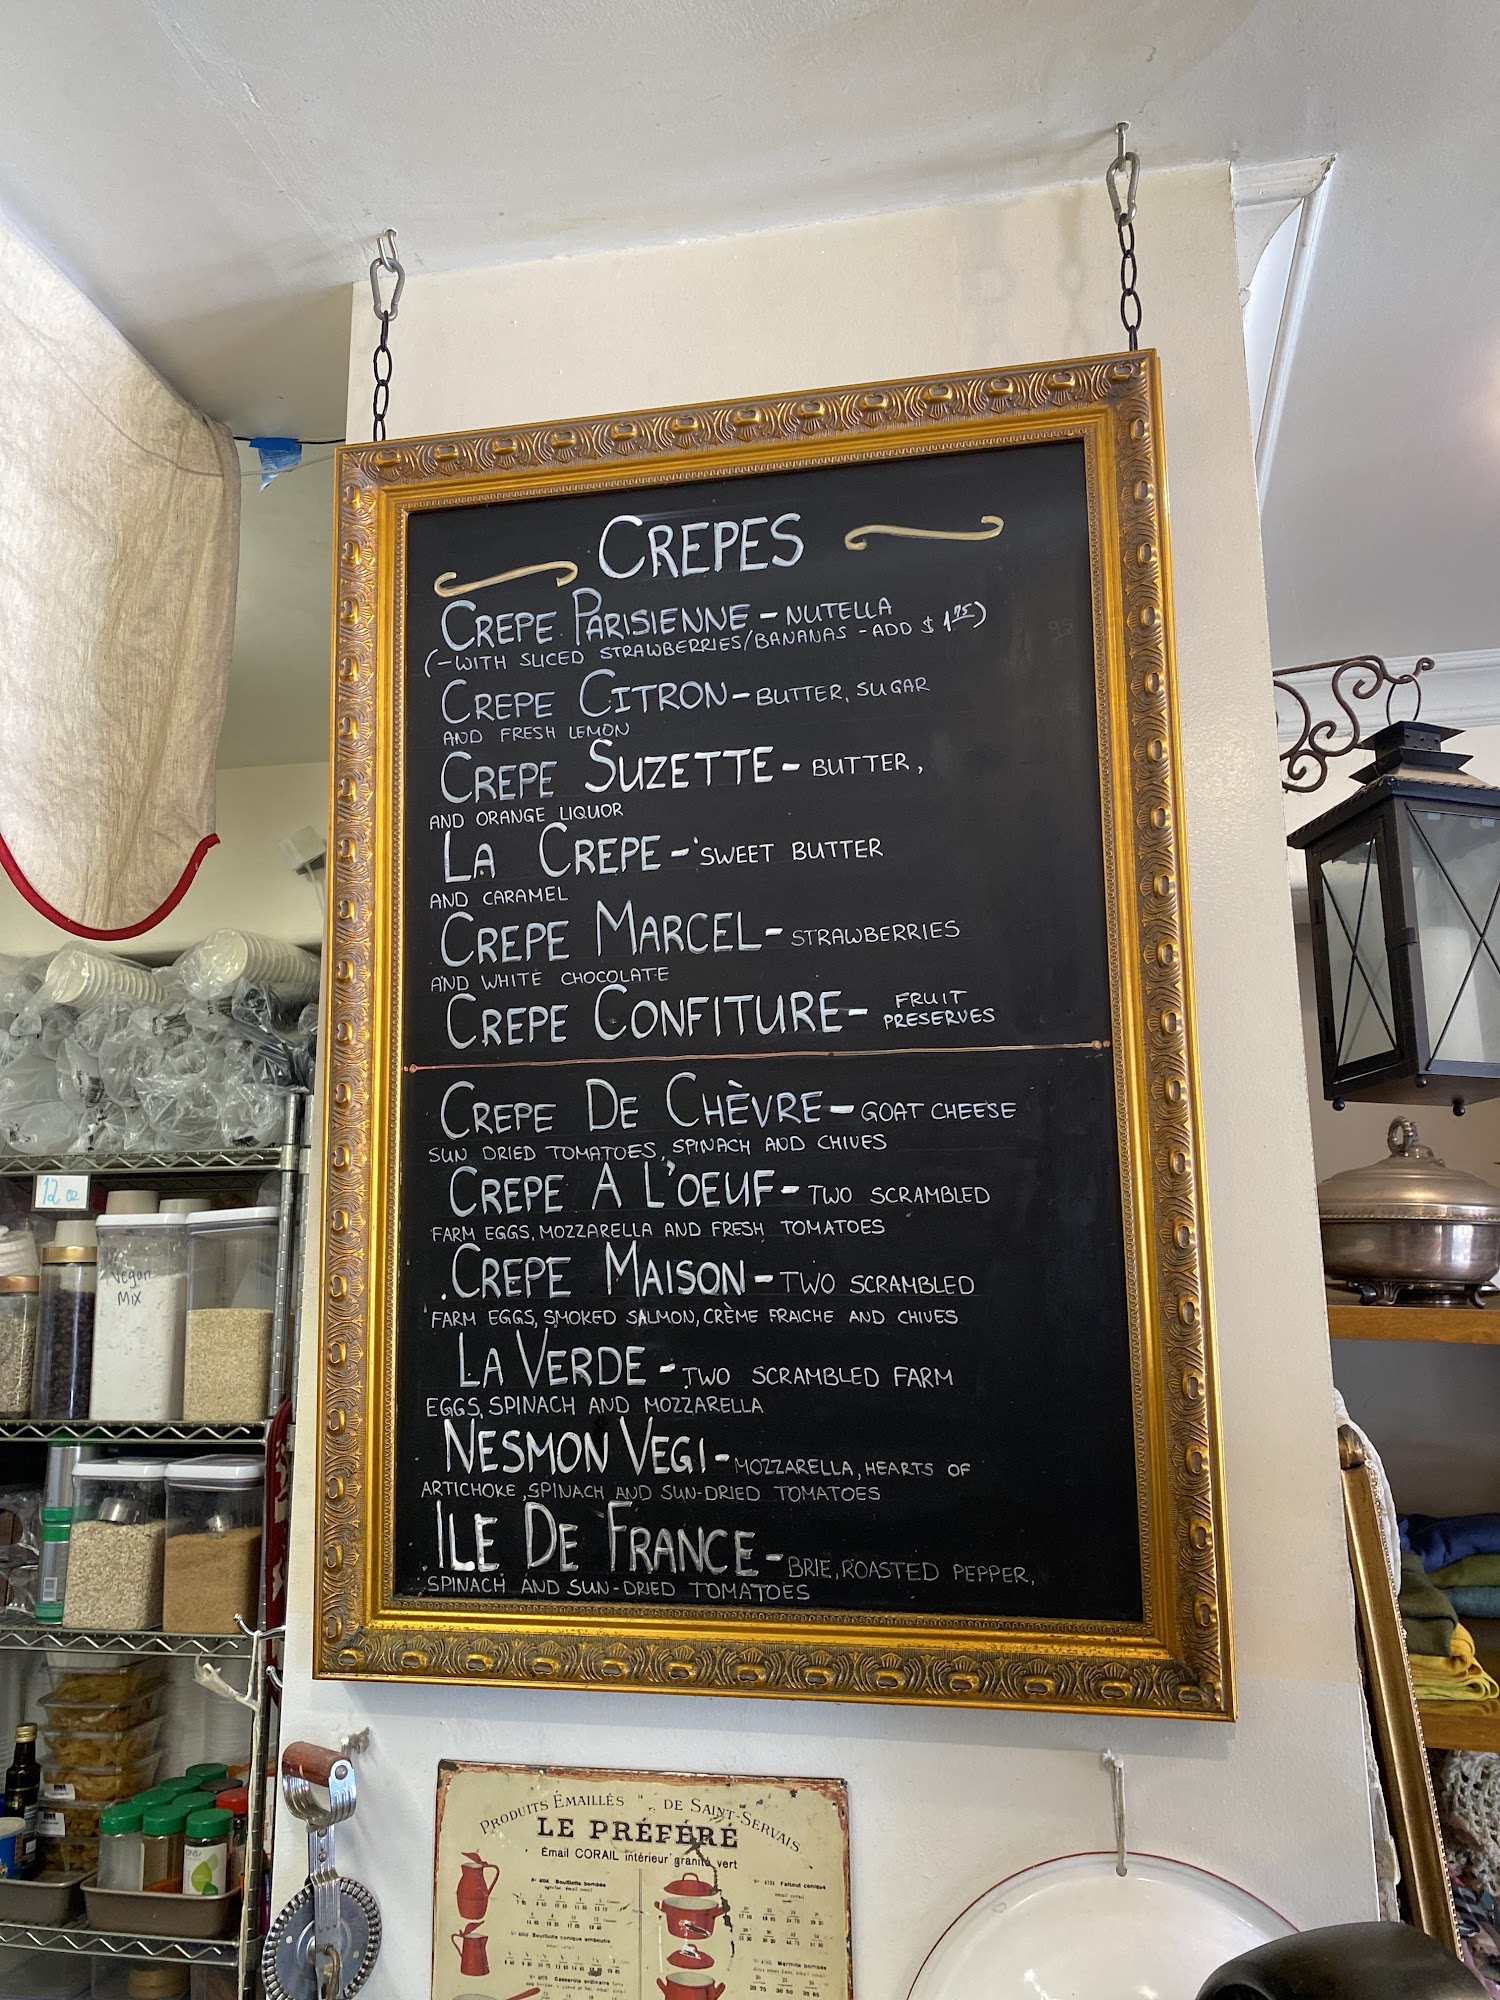 CREPES
CREPE PARISIENNE - NUTELLA
(-WITH SLICED STRAWBERRIES/BANANAS - ADD $1.75)
CREPE CITRON - BUTTER, SUGAR
AND FRESH LEMON
CREPE SUZETTE - BUTTER,
AND ORANGE LIQUOR
LA CREPE - SWEET BUTTER
AND CARAMEL
CREPE MARCEL - STRAWBERRIES
AND WHITE CHOCOLATE
CREPE CONFITURE - FRUIT
PRESERVES
CREPE DE CHÈVRE - GOAT CHEESE
SUN DRIED TOMATOES, SPINACH AND CHIVES
CREPE A L'OEUF - TWO SCRAMBLED
FARM EGGS, MOZZARELLA AND FRESH TOMATOES
CREPE MAISON - TWO SCRAMBLED
FARM EGGS, SMOKED SALMON, CRÈME FRAICHE AND CHIVES
LA VERDE - TWO SCRAMBLED FARM
EGGS, SPINACH AND MOZZARELLA
NESMON VEGI - MOZZARELLA, HEARTS OF
ARTICHOKE, SPINACH AND SUN-DRIED TOMATOES
ILE DE FRANCE - BRIE, ROASTED PEPPER,
SPINACH AND SUN-DRIED TOMATOES
12 oz
Vegan
Mix
PRODUITS ÉMAILLÉS DE SAINT-SERVAIS
LE PRÉFÉRÉ
Émail CORAIL intérieur granité vert
Bouillotte bombée
Faitout conique
Bouillotte conique emboutie
Marmite bombée
Casserole ordinaire